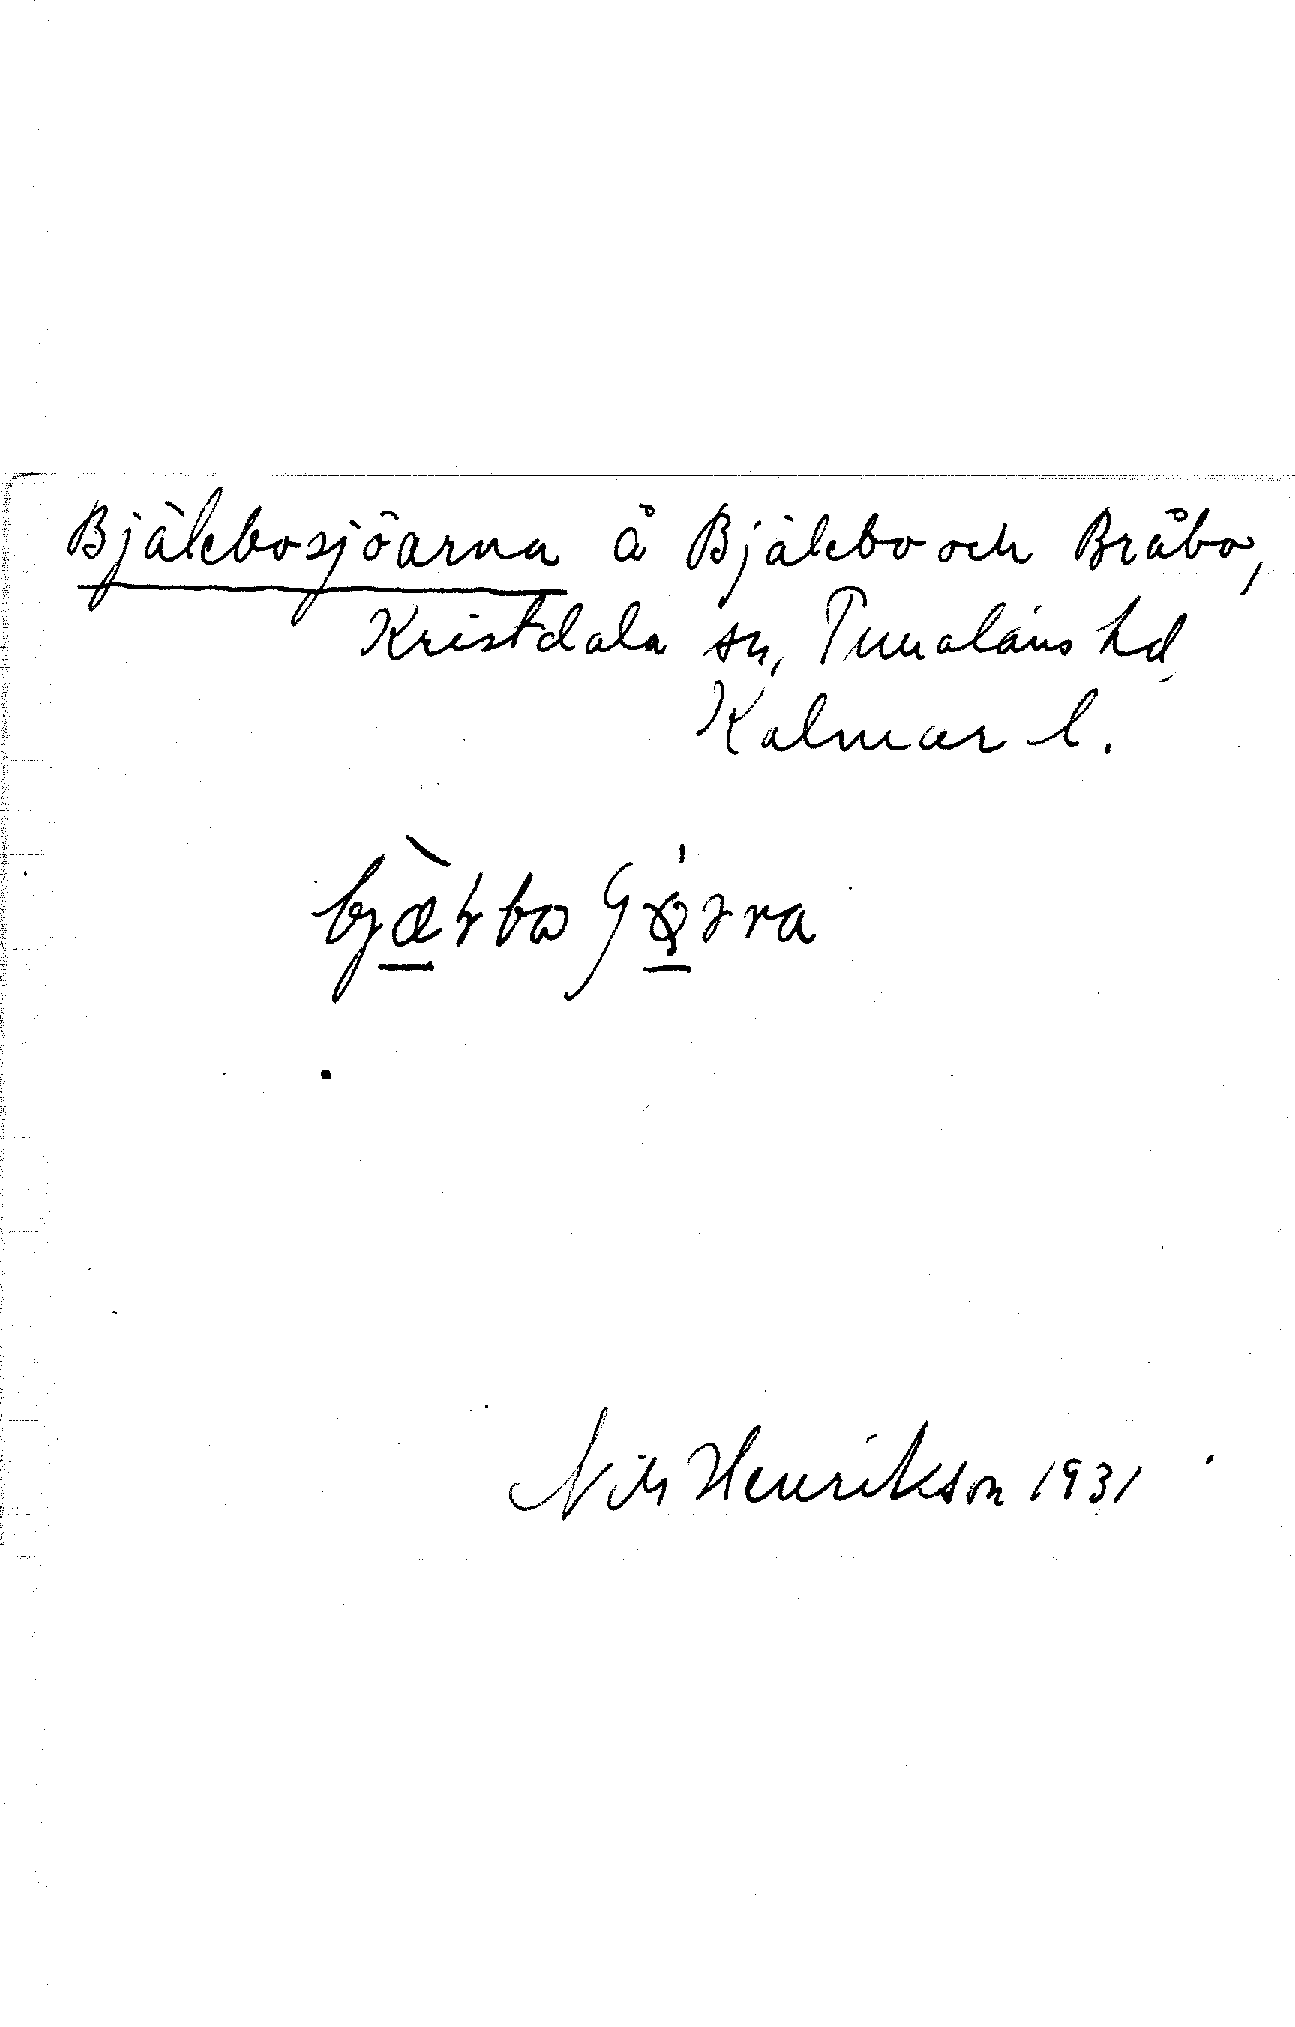 Bjälebosjöarna å Bjälebo och Bråbo,
Kristdala sn, Tunaläns hd
Kalmar l.
Nils Henrikson 1931